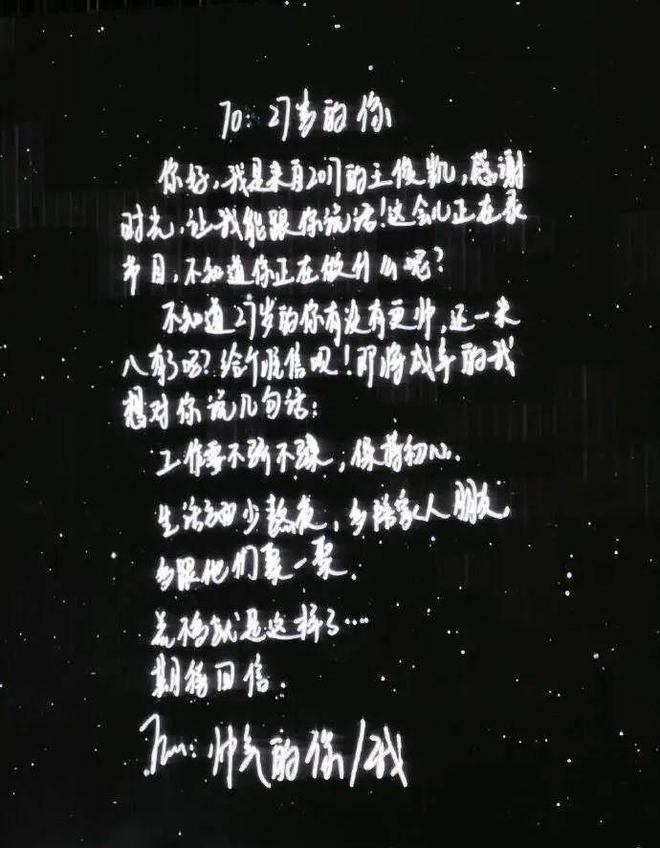 To: 27岁的你
你好,我是来自2017的王俊凯,感谢
时光,让我能跟你说话!这会儿正在录
节目,不知道你正在做什么呢?
不知道27岁的你有没有更帅,还一米
八有了吗?给个准信呗!即将成年的我
想对你说几句话:
工作要不骄不躁,保持初心.
生活要少熬夜,多陪家人朋友
多跟他们聚一聚.
差不多就是这样了……
期待回信.
From: 帅气的你/我